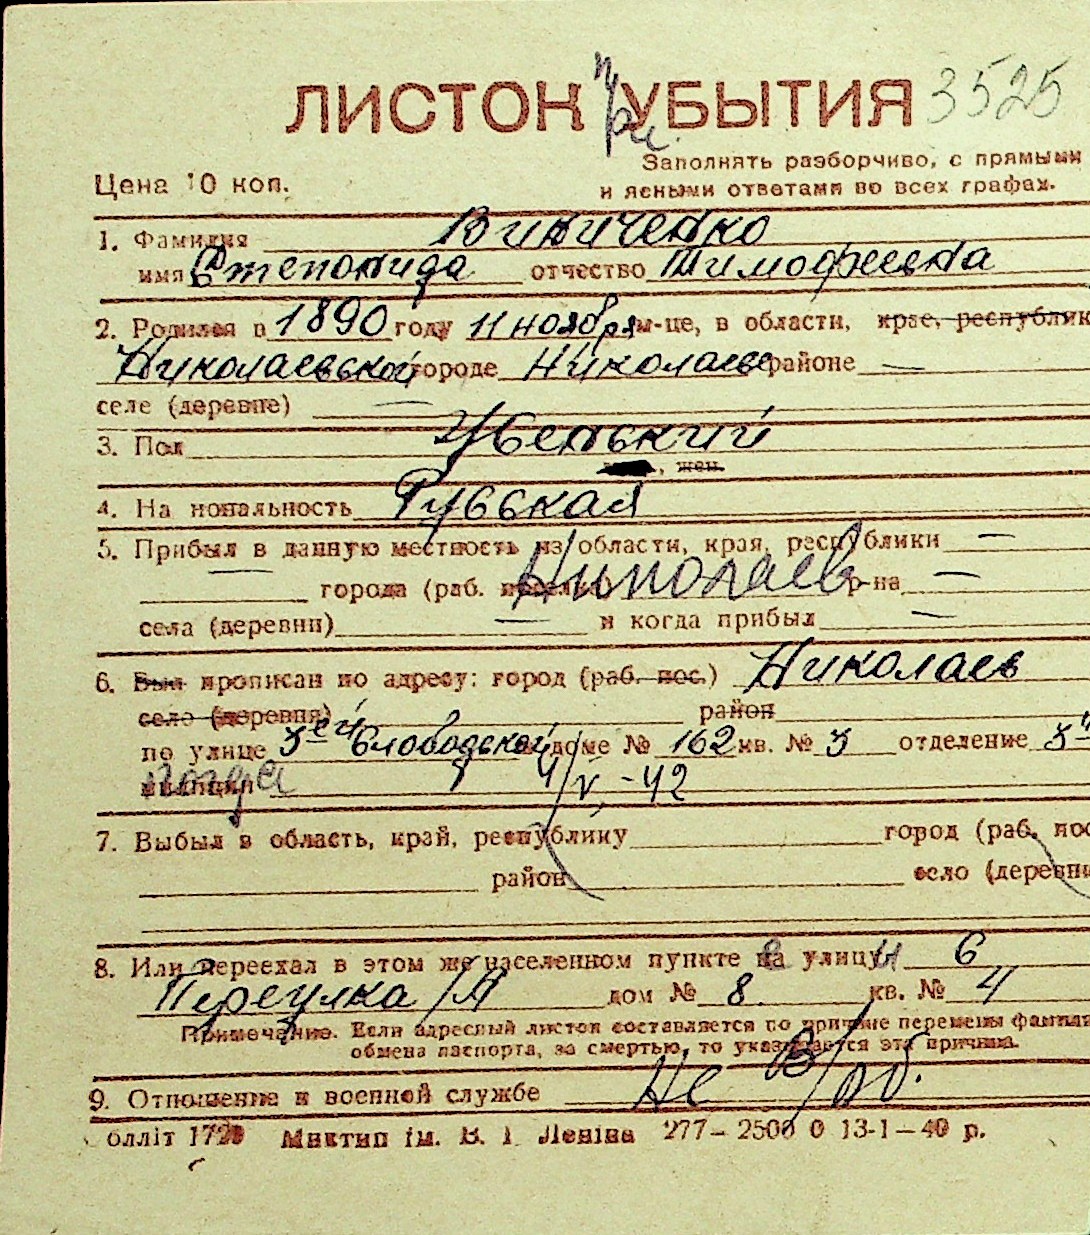 ЛИСТОК УБЫТИЯ 3525
Заполнять разборчиво, с прямыми
Цена 10 коп. и ясными ответами во всех графах.
1. Фамилия Виниченко
имя Степонида отчество Тимофеевна
2. Родился в 1890 году 11 ноября м-це, в области, крае, республик
Николаевской городе Николаеве районе —
селе (деревне) —
3. Пол Женский
, жен.
4. Национальность Русская
5. Прибыл в данную местность из области, края, республики —
— города (раб. Николаев р-на —
села (деревни) — и когда прибыл —
6. Был прописан по адресу: город (раб. пос.) Николаев
село (деревня) район
по улице 3ей Слободской доме № 162 кв. № 3 отделение 3
милиции когда 4/V-42
7. Выбыл в область, край, республику город (раб. пос
район село (деревни
8. Или переехал в этом же населенном пункте на улицу 6
Переулка /М дом № 8 кв. № 4
Примечание. Если адресный листок составляется по причине перемены фамили
обмена паспорта, за смертью, то указывается эта причина.
9. Отношение к военной службе Не в/об.
Миктип ім. В. І. Леніна 277—2500 0 13-1—40 р.